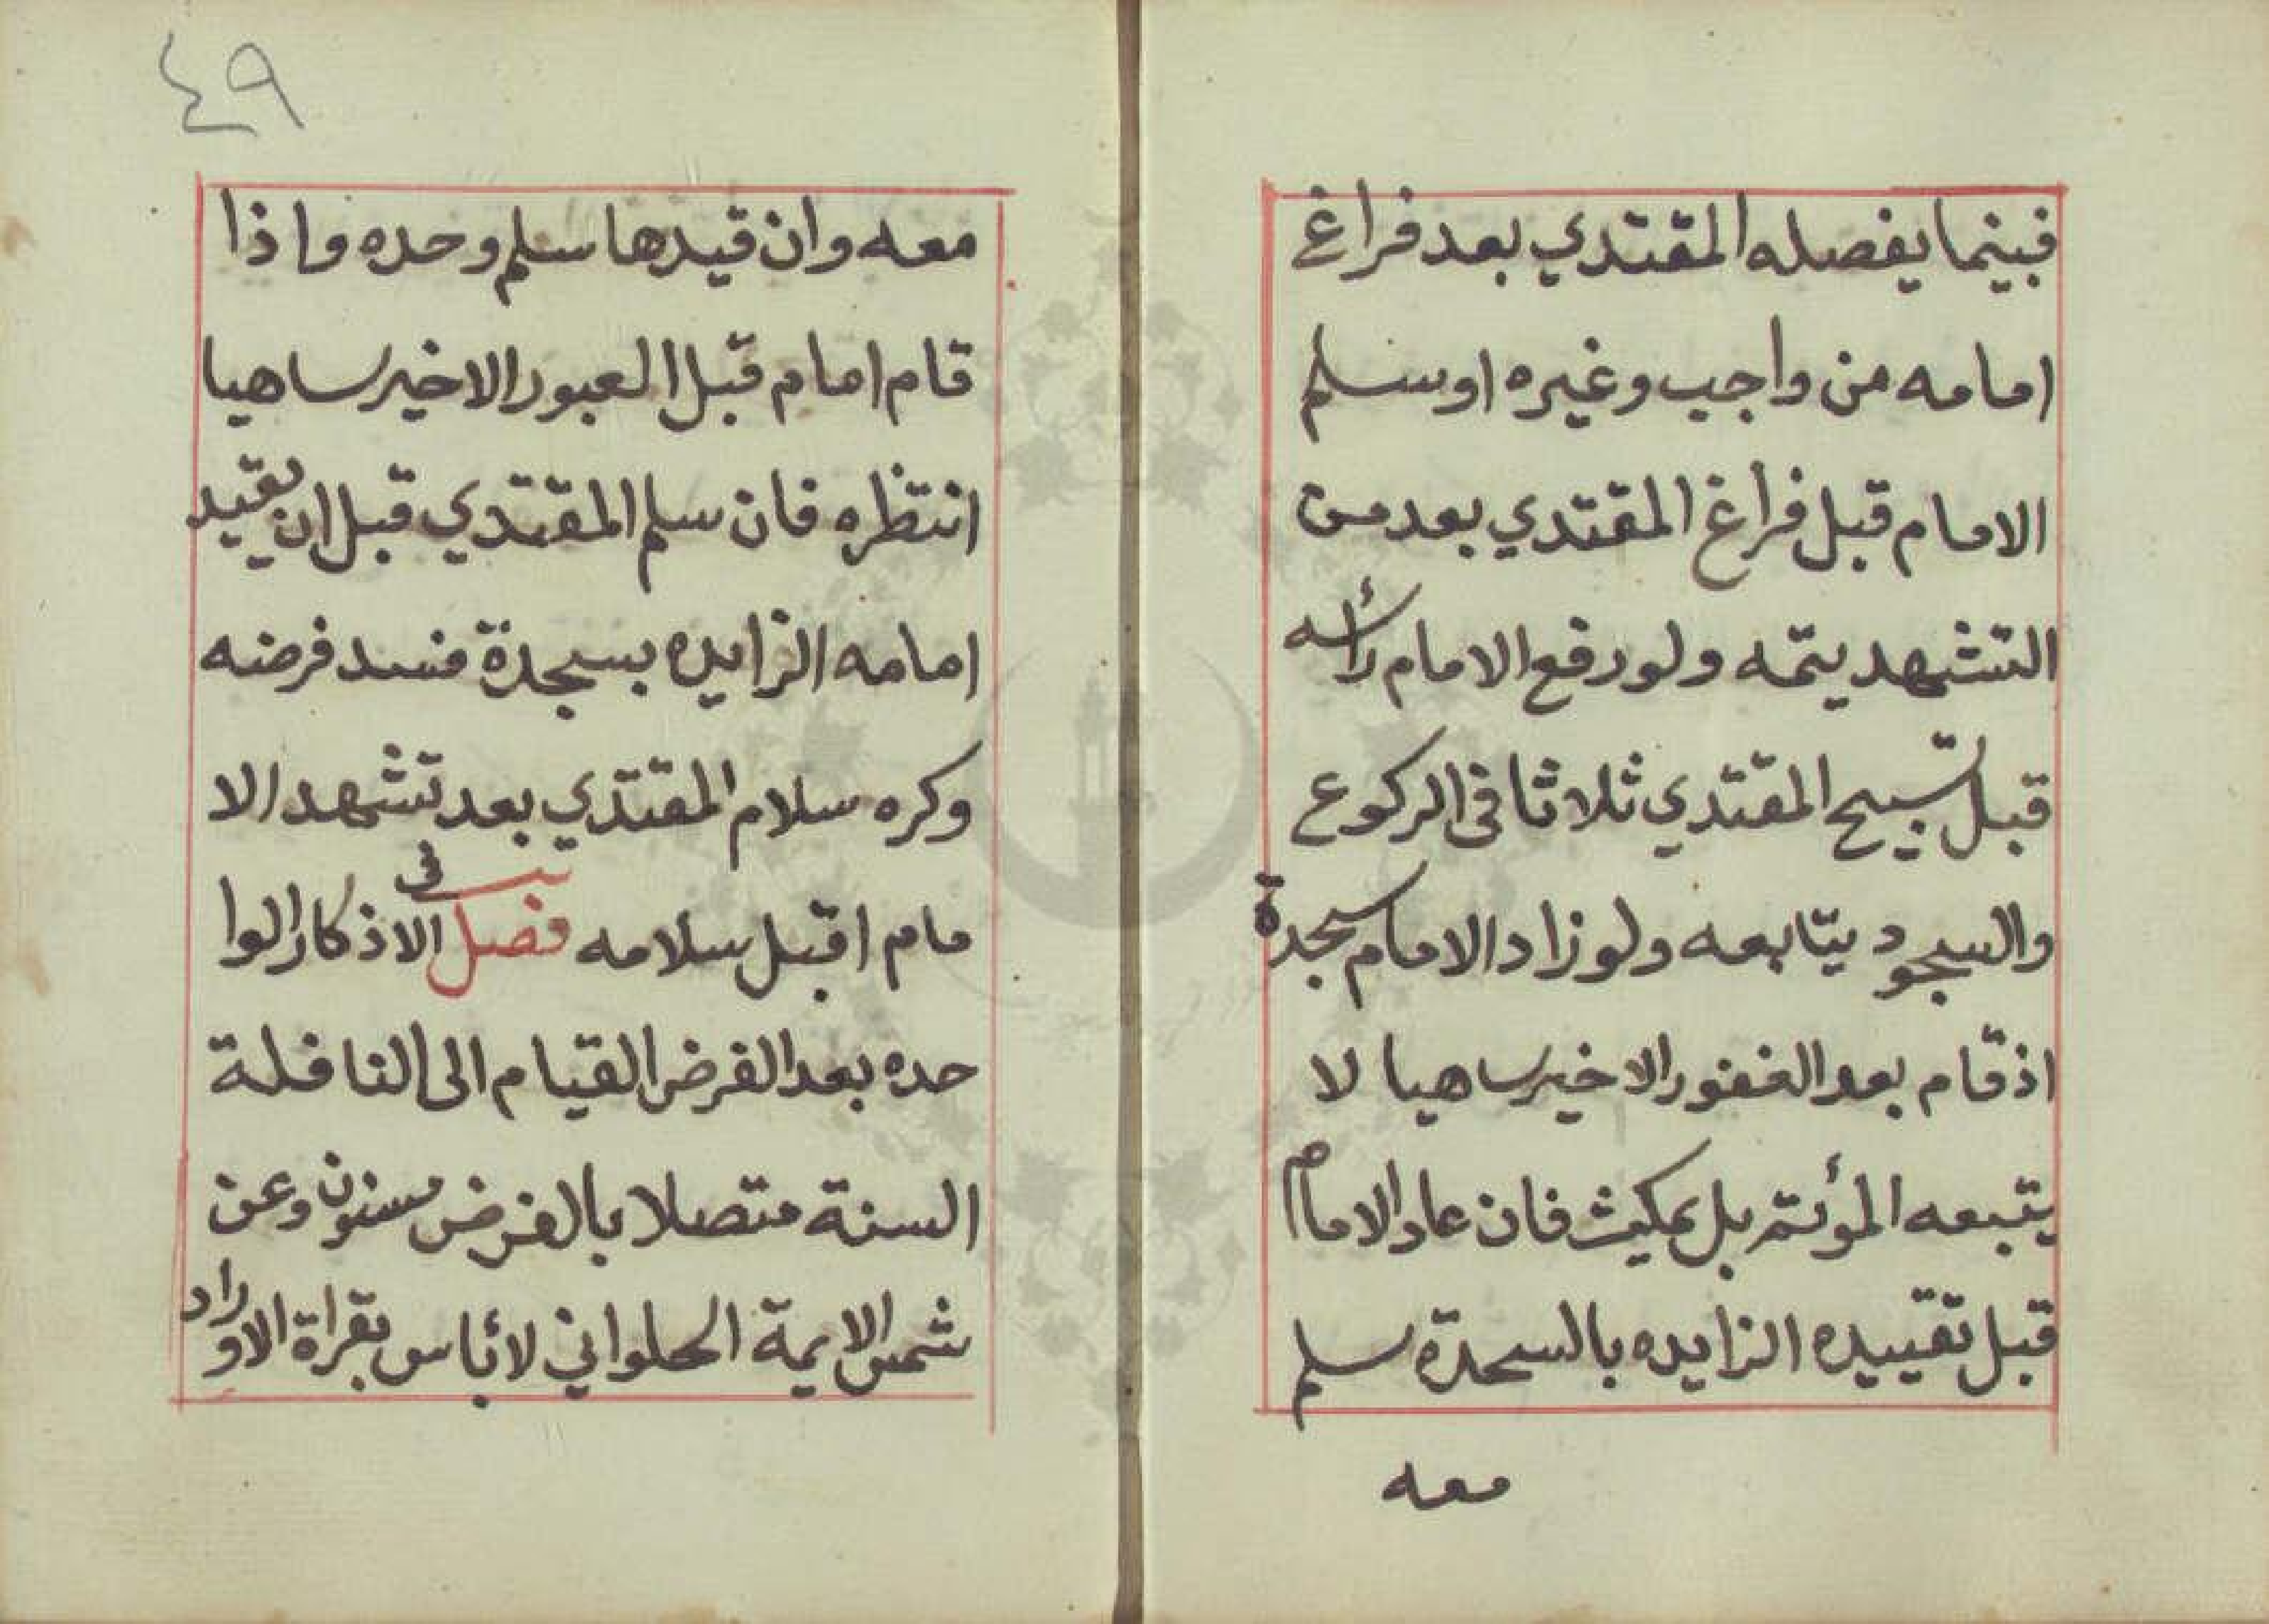 فبينما يفصله المقتدي بعد فراغ
امامه من واجب وغيره او سلم
الامام قبل فراغ المقتدي بعد من
التشهد يتمه ولو رفع الامام رأسه
قبل تسبيح المقتدي ثلاثا في الركوع
والسجود يتابعه ولو زاد الامام سجدة
اذ قام بعد الغفور الاخير ساهيا لا
يتبعه المؤتم بل يمكث فان عاد الامام
قبل تقييده الزايده بالسحدة سلم
معه
٤٩
معه وان قيدها سلم وحده واذا
قام امام قبل العبور الاخير ساهيا
انتظره فان سلم المقتدي قبل ان يقيد
امامه الزايده بسجدة فسد فرضه
وكره سلام المقتدي بعد تشهد الا
مام اقبل سلامه فصل في الاذكار الوا
حده بعد الفرض القيام الى النافلة
السنة متصلا بالفرض مسنون وعن
شمس الايمة الحلواني لا بأس بقراة الاوراد